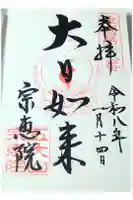 奉拝
令和八年
一月十四日
大日如来
宗恵院